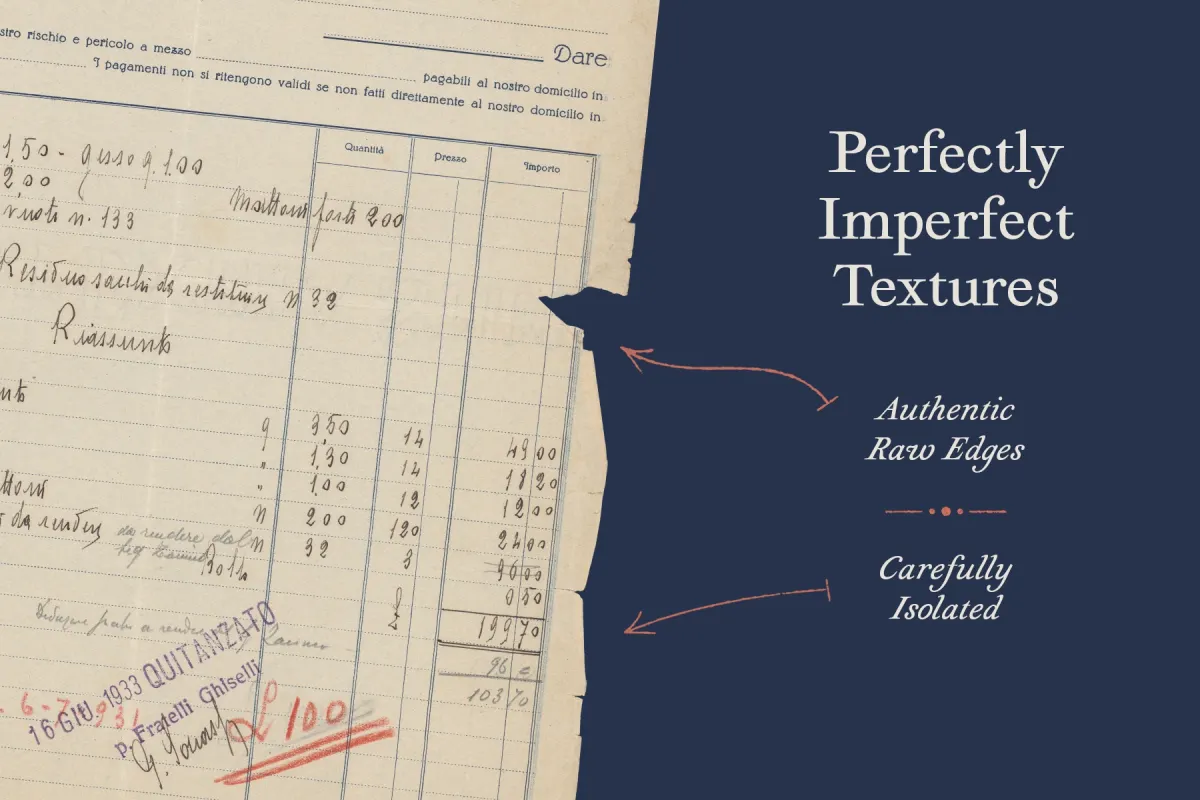 stro rischio e pericolo a mezzo
Dare
pagabili al nostro domicilio in
I pagamenti non si ritengono validi se non fatti direttamente al nostro domicilio in
Quantità Prezzo Importo
1,50 - gesso q. 1.00
2,00
vuoti n. 133
Mattoni forti 200
Residuo sacchi da restituire n 32
Riassunto
q 3,50 14 49 00
" 1,30 14 18 20
" 1,00 12 12 00
n 200 120 24 00
n 32 3 96 00
da rendere dal
Bollo
0 50
199 70
96
103 70
16 GIU. 1933 QUITANZATO
p. Fratelli Ghiselli
£ 100
Perfectly
Imperfect
Textures
Authentic
Raw Edges
Carefully
Isolated